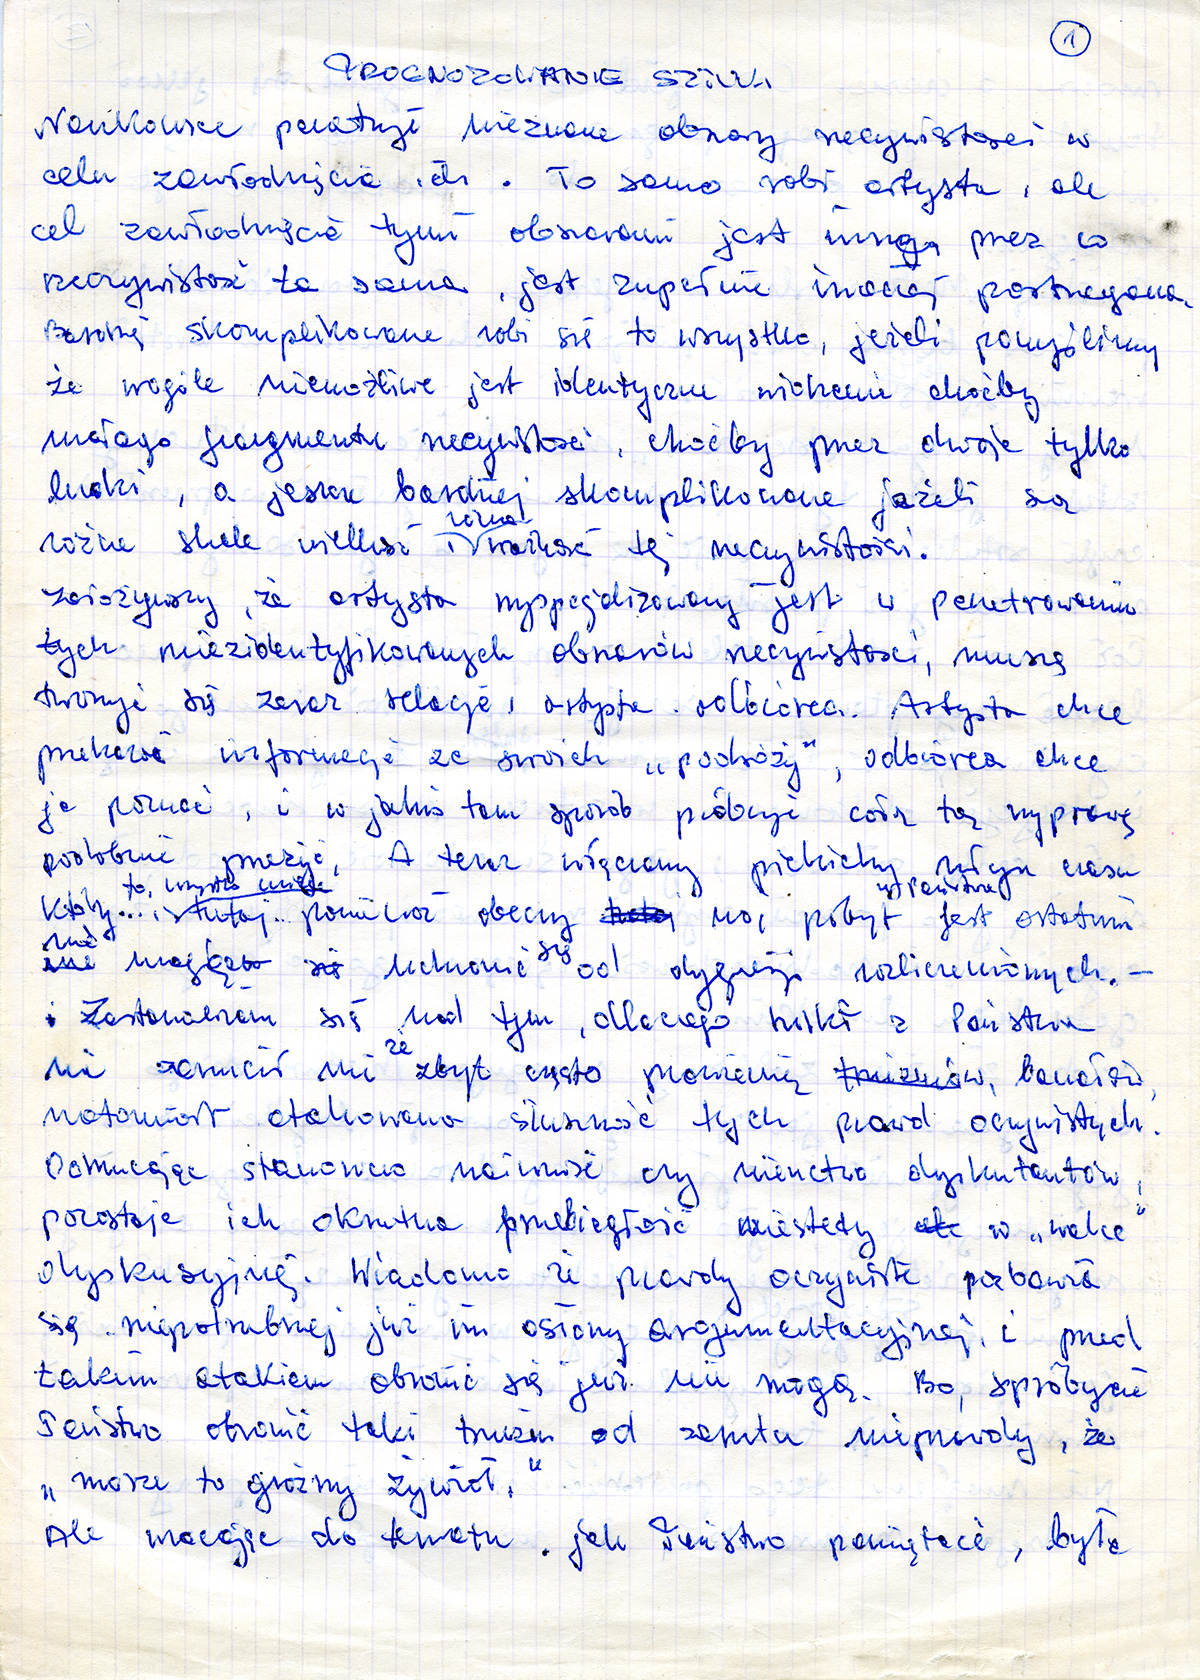 1
PROGNOZOWANIE SZTUKI
Naukowce penetruje nieznane obszary rzeczywistości w
celu zawłodnięcia ich. To samo robi artysta, ale
cel zawłodnięcia tymi obszarami jest inny, przez co
rzeczywistość ta sama, jest zupełnie inaczej postrzegana.
Bardziej skomplikowane robi się to wszystko, jeżeli pomyślimy
że wogóle niemożliwe jest identyczne widzenie choćby
małego fragmentu rzeczywistości, choćby przez dwoje tylko
ludzi, a jeszcze bardziej skomplikowane jeżeli są
różne skale wielkości i różna ważność tej rzeczywistości.
Założywszy, że artysta wyspecjalizowany jest w penetrowaniu
tych niezidentyfikowanych obszarów rzeczywistości, muszą
tworzyć się zaraz relacje, artysta - odbiorca. Artysta chce
przekazać informacje ze swoich „podróży", odbiorca chce
je poznać, i w jakiś tam sposób próbuje całą tą wyprawę
podobnie przeżyć. A teraz włączamy piekielny młyn czasu
kiedy... to wszystko i tutaj.. ponieważ obecny mój pobyt jest ostatni
nie mogłem uchronić się od dygresji rozlicznych. —
Zastanawiam się nad tym, dlaczego nikt z Państwa
nie zarzucił mi że zbyt często prawienia truizmów, banałów,
natomiast atakowano słuszność tych prawd oczywistych.
Odrzucając stanowczo naiwność czy nieuctwo dyskutantów,
pozostaje ich okrutna przebiegłość niestety w „walce"
dyskusyjnej. Wiadomo że prawdy oczywiste pozbawia
się niepotrzebnej już im osłony argumentacyjnej, i przed
takim atakiem obronić się już nie mogą. Bo, spróbujcie
Państwo obronić taki truizm od zarzutu nieprawdy, że
„morze to groźny żywioł."
Ale wracając do tematu. jak Państwo pamiętacie, była